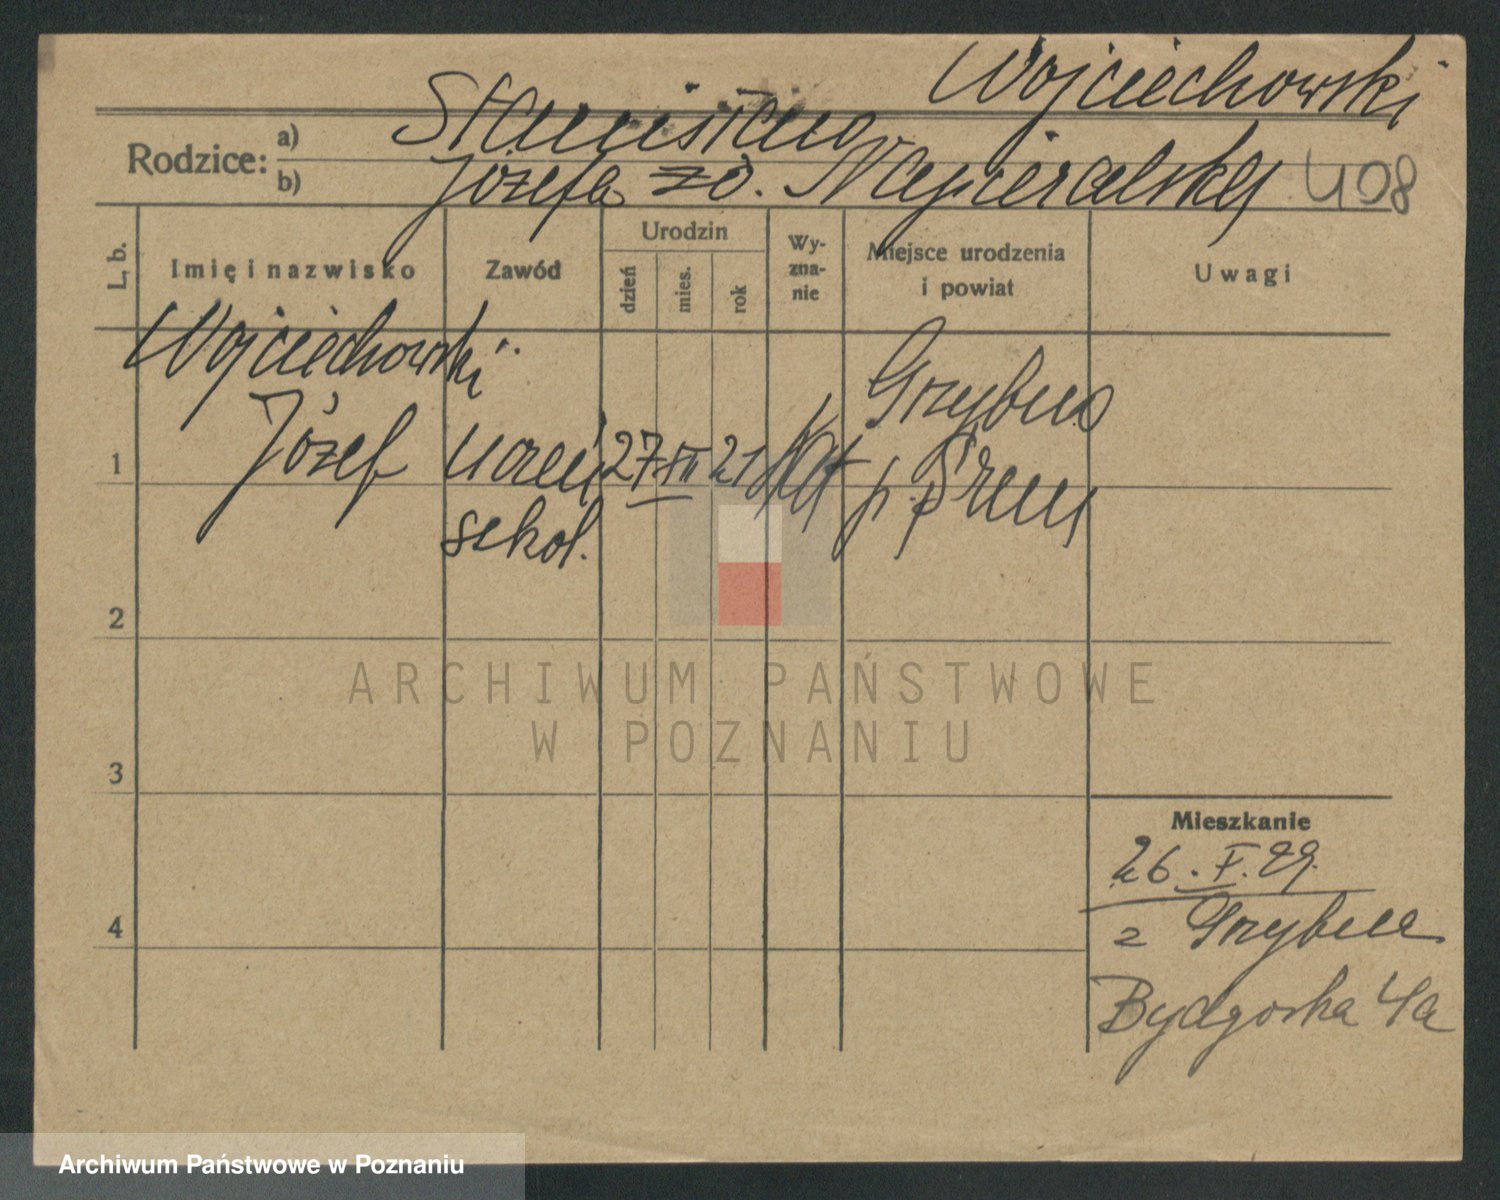 Wojciechowski
Rodzice: a) Stanisław
b) Józefa zd. Napieralskij 408
L. b.
Imię i nazwisko
Zawód
Urodzin
dzień
mies.
rok
Wy-
zna-
nie
Miejsce urodzenia
i powiat
Uwagi
Wojciechowski
Józef
1
uczeń
szkol.
27 XII 21
kat
Grzybno
p. Śrem
2
3
4
Mieszkanie
26. V. 29.
z Grzybna
Bydgoska 4a
ARCHIWUM PAŃSTWOWE
W POZNANIU
Archiwum Państwowe w Poznaniu